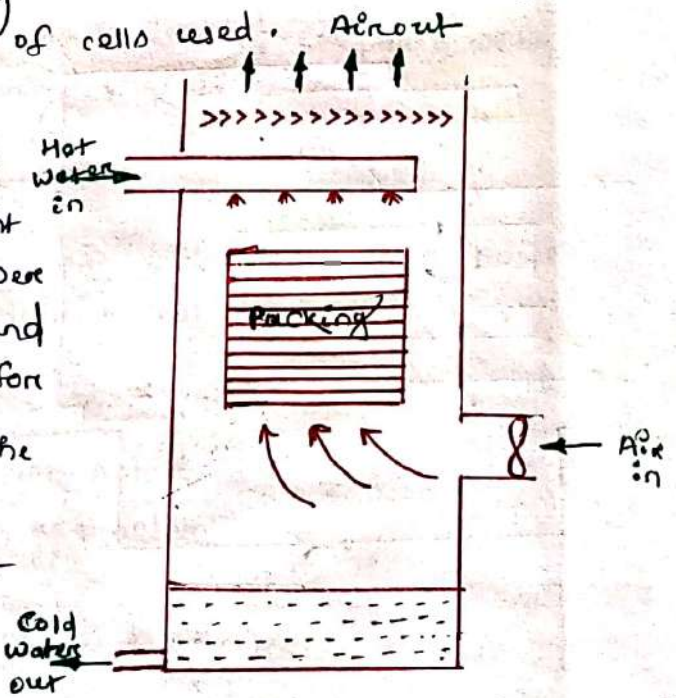 of cells used. Air out
Hot
water
in
Packing
and
Air
in
Cold
water
out